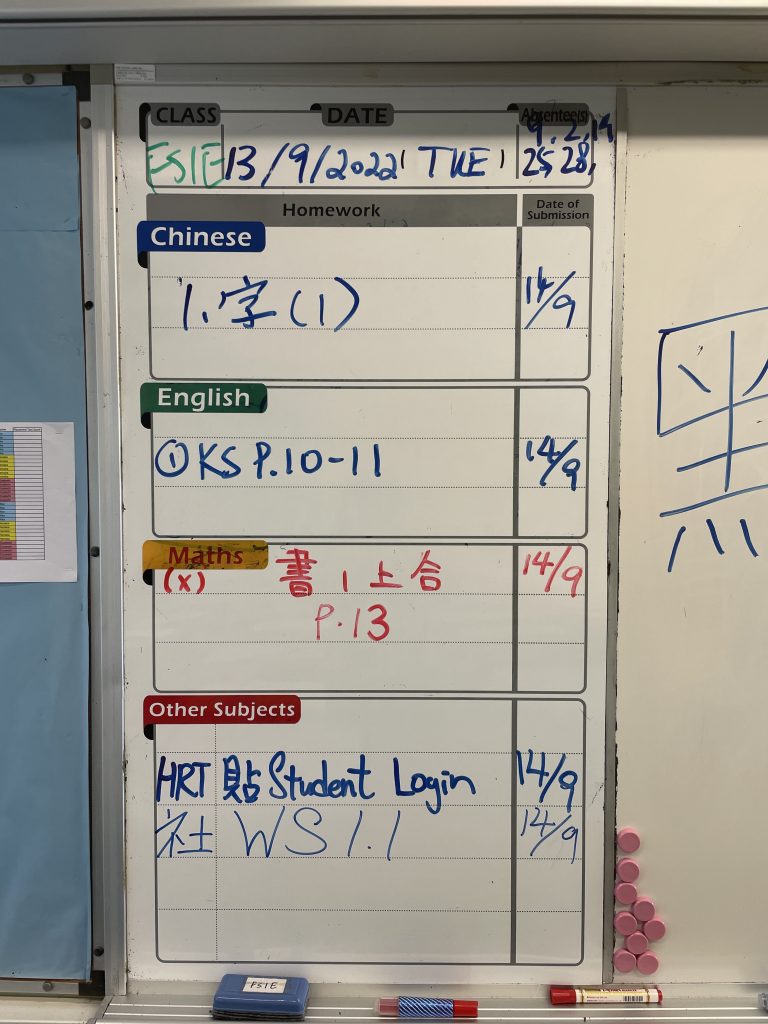 CLASS DATE Absentee(s)
FS1E 13/9/2022 (TUE) 9, 2, 19,
25, 28,
Homework Date of Submission
Chinese
1. 字(1) 14/9
English
① KS P.10-11 14/9
Maths
(X) 書1上合 14/9
P.13
Other Subjects
HRT 貼 Student Login 14/9
社 WS 1.1 14/9
FS1E